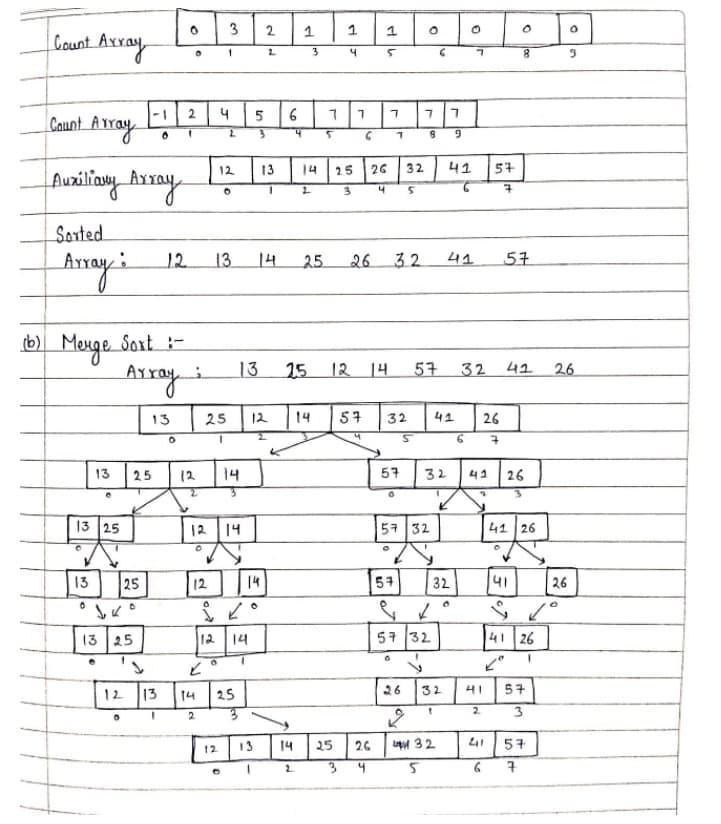 Count Array 0 3 2 1 1 1 0 0 0 0
0 1 2 3 4 5 6 7 8 9
Count Array -1 2 4 5 6 7 7 7 7 7
0 1 2 3 4 5 6 7 8 9
Auxiliary Array 12 13 14 25 26 32 41 57
0 1 2 3 4 5 6 7
Sorted
Array : 12 13 14 25 26 32 41 57
(b) Merge Sort :-
Array : 13 25 12 14 57 32 41 26
13 25 12 14 57 32 41 26
0 1 2 3 4 5 6 7
13 25 12 14 57 32 41 26
0 1 2 3 0 1 2 3
13 25 12 14 57 32 41 26
0 1 0 1 0 1 0 1
13 25 12 14 57 32 41 26
0 0 0 0 0 0 0 0
13 25 12 14 57 32 41 26
0 1 0 1 0 1 0 1
12 13 14 25 26 32 41 57
0 1 2 3 0 1 2 3
12 13 14 25 26 32 41 57
0 1 2 3 4 5 6 7